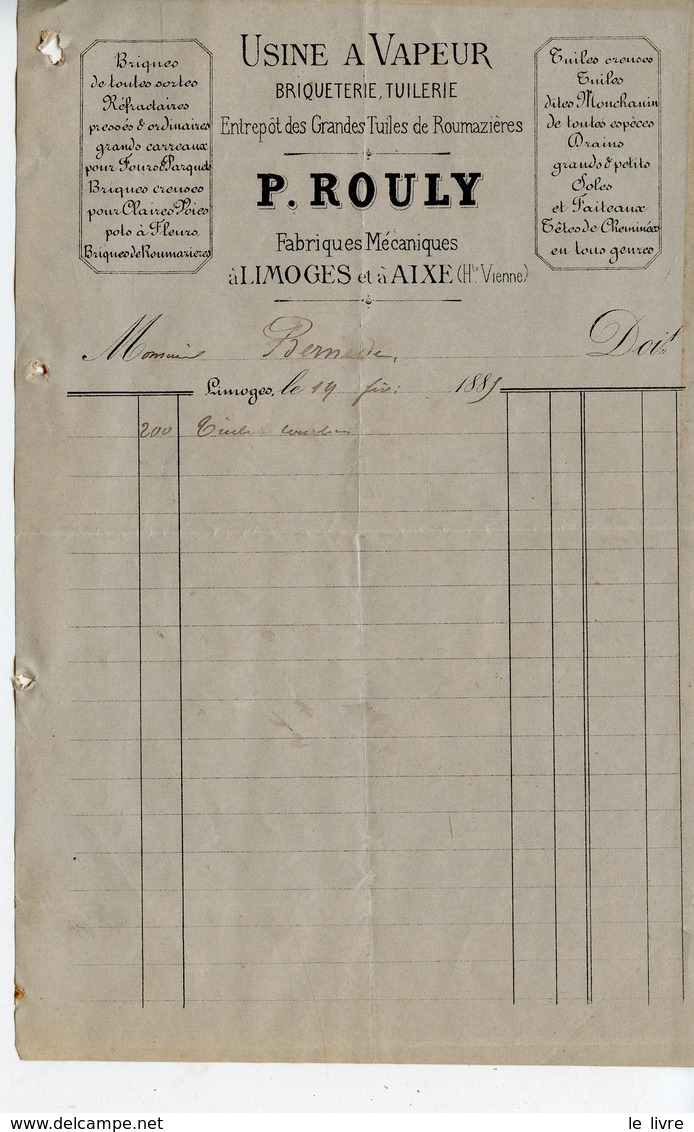 Briques
de toutes sortes
Réfractaires
pressés & ordinaires
grands carreaux
pour Fours & Parquets
Briques creuses
pour Claires Voies
pots à Fleurs
Briques de Roumazières
USINE A VAPEUR
BRIQUETERIE, TUILERIE
Entrepôt des Grandes Tuiles de Roumazières
P. ROULY
Fabriques Mécaniques
à LIMOGES et à AIXE (Hte Vienne)
Tuiles creuses
Tuiles
dites Monchanin
de toutes espèces
Drains
grands & petits
Soles
et Faiteaux
Têtes de Cheminées
en tous genres
Monsieur Doit
Limoges, le 19 188
200
le livre